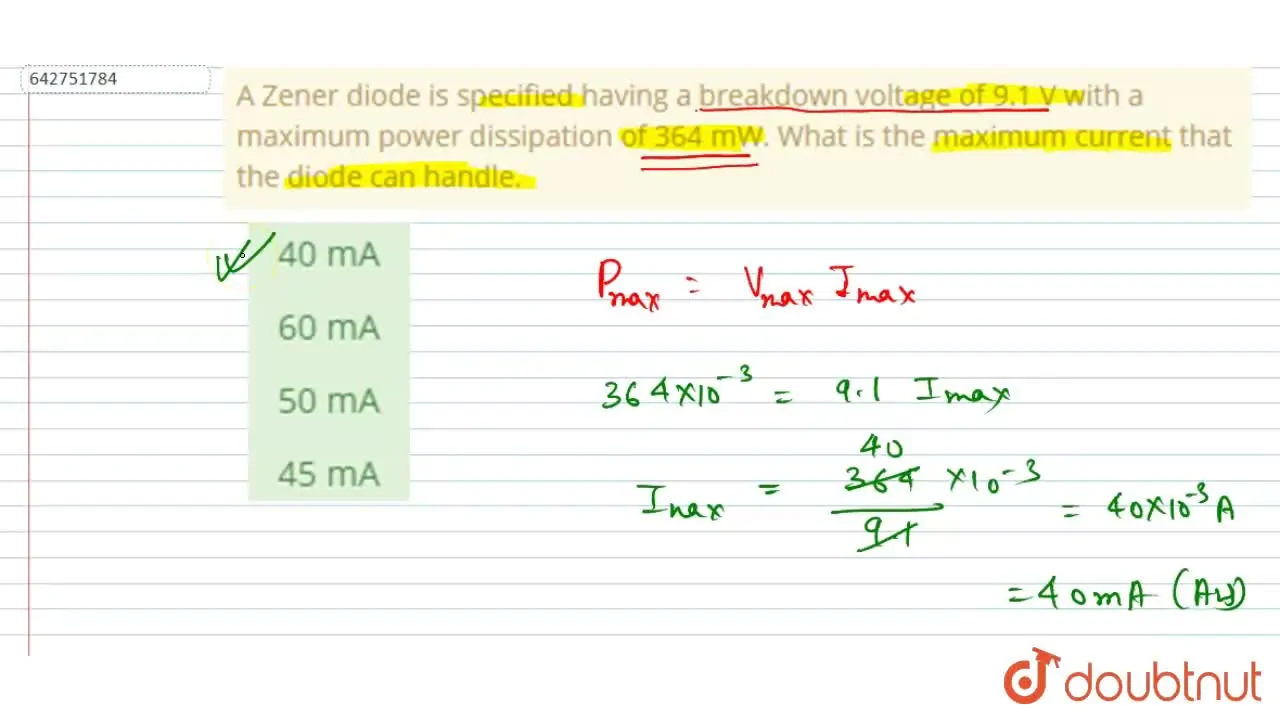 642751784
A Zener diode is specified having a breakdown voltage of 9.1 V with a
maximum power dissipation of 364 mW. What is the maximum current that
the diode can handle.
40 mA
60 mA
50 mA
45 mA
Pmax = Vmax Imax
364×10⁻³ = 9.1 Imax
40
Imax = 364 ×10⁻³ = 40×10⁻³ A
9.1
= 40mA (Ans)
doubtnut